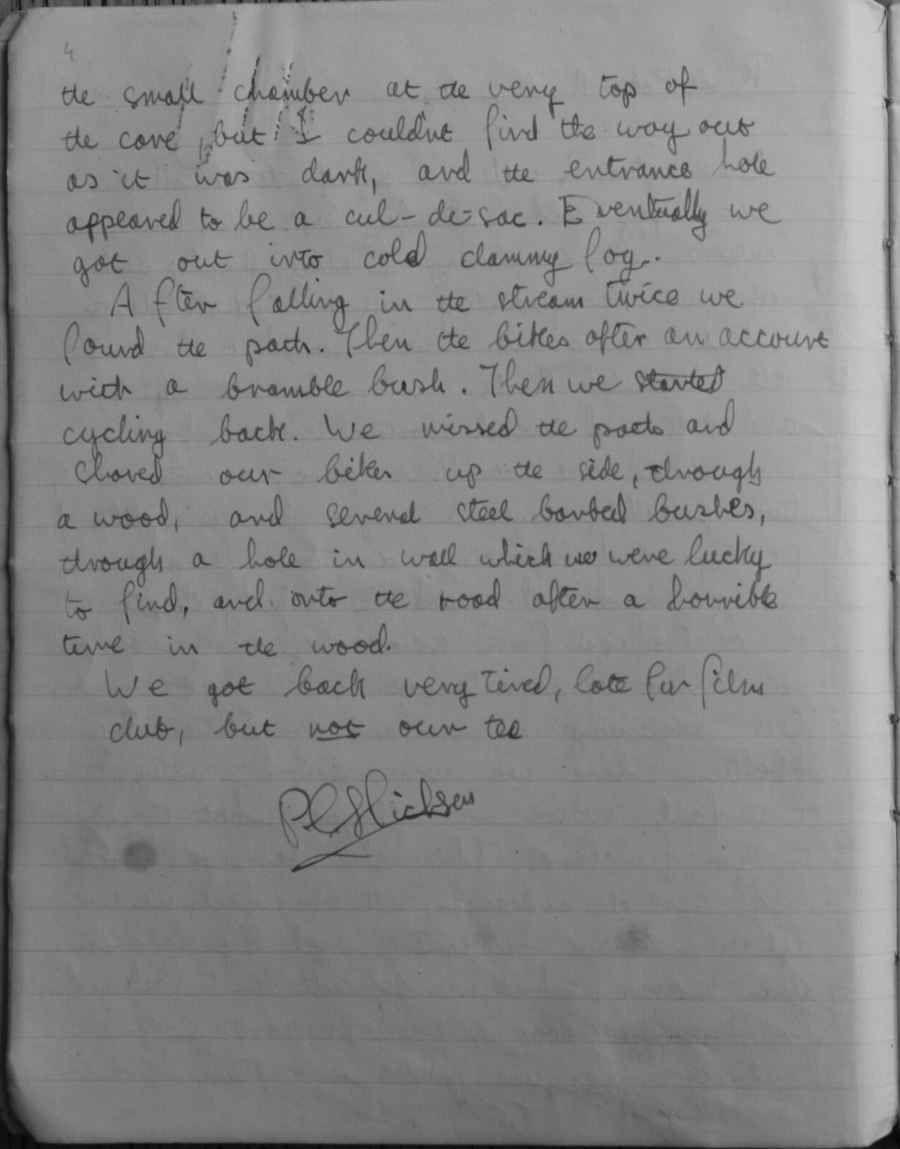 4
the small chamber at the very top of
the cave, but I couldnt find the way out
as it was dark, and the entrance hole
appeared to be a cul-de-sac. Eventually we
got out into cold clammy fog.
After falling in the stream twice we
found the path. Then the bikes after an account
with a bramble bush. Then we started
cycling back. We missed the path and
shoved our bikes up the side, through
a wood, and several steel barbed bushes,
through a hole in wall which we were lucky
to find, and onto the road after a horrible
time in the wood.
We got back very tired, late for film
club, but not our tea